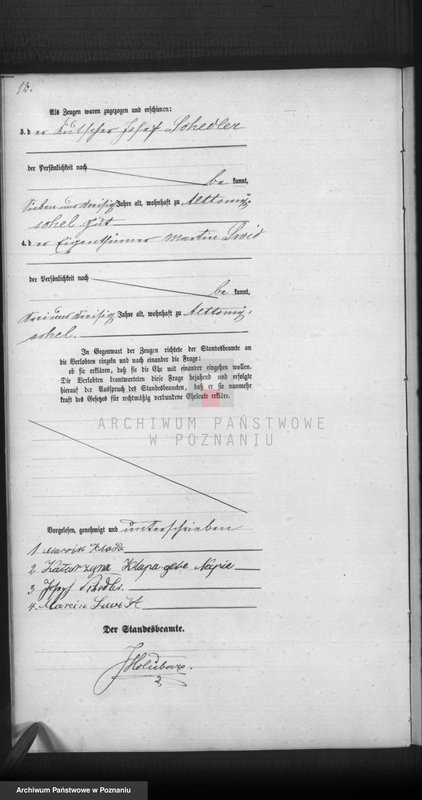 13.
Als Zeugen waren zugezogen und erschienen:
3. der Kutscher Josef Schedler
der Persönlichkeit nach
bekannt,
sieben und dreißig Jahre alt, wohnhaft zu Alttomy-
schel Gut
4. der Eigenthümer Martin
der Persönlichkeit nach
bekannt,
drei und dreißig Jahre alt, wohnhaft zu Alttomy-
schel.
In Gegenwart der Zeugen richtete der Standesbeamte an
die Verlobten einzeln und nach einander die Frage:
ob sie erklären, daß sie die Ehe mit einander eingehen wollen.
Die Verlobten beantworteten diese Frage bejahend und erfolgte
hierauf der Ausspruch des Standesbeamten, daß er sie nunmehr
kraft des Gesetzes für rechtmäßig verbundene Eheleute erkläre.
ARCHIWUM PAŃSTWOWE
W POZNANIU
Vorgelesen, genehmigt und unterschrieben
1
2 Katarzyna Klapa gebo
3 Josef
4. Marcin
Der Standesbeamte.
Archiwum Państwowe w Poznaniu